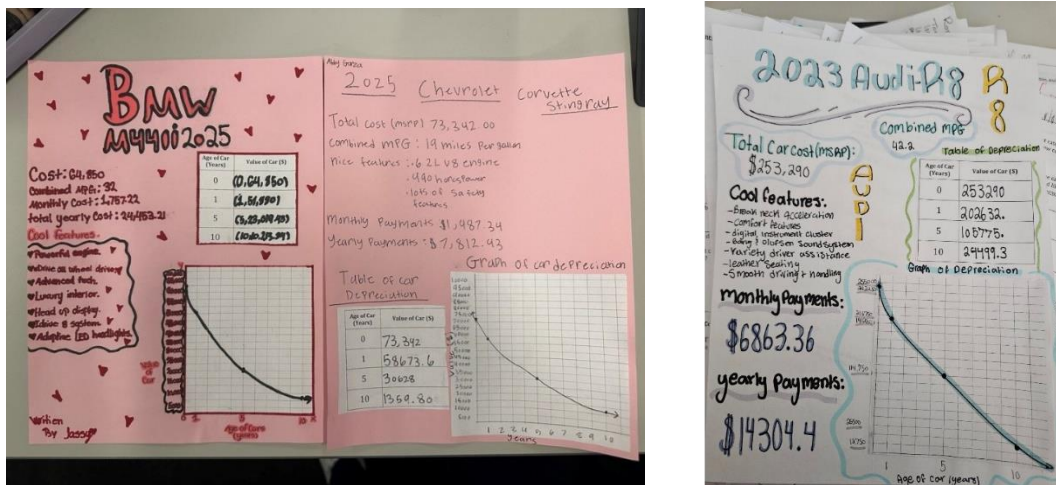 BMW
M440i 2025
Cost: 64,850
Combined MPG: 32
Monthly Cost: 1,757.22
total yearly Cost: 24,453.21
Cool Features.
Powerful engine.
Advanced tech.
Luxury interior.
Head up display.
Idrive 8 system
Adaptive LED headlights.
Age of Car (Years) Value of Car ($)
0 (0,64,850)
1
5
10
Value of Car
Written By
Abby Garza
2025 Chevrolet Corvette Stingray
Total Cost (msrp) 73,342.00
Combined mpg: 19 miles Per gallon
nice features: 6.2L V8 engine
490 horsepower
lots of safety features
monthly Payments $1,987.34
Yearly Payments: $7,812.93
Table of car Depreciation
Age of Car (Years) Value of Car ($)
0 73,342
1 58673.6
5 30628
10 1359.80
Graph of car depreciation
1 2 3 4 5 6 7 8 9 10
years
2023 Audi-R8
R8
Total Car Cost (MSRP):
$253,290
Combined MPG
42.2
AUDI
Cool features:
-Break neck acceleration
-Comfort features
-digital instrument cluster
-Bang & Olufsen Sound system
-Variety driver assistance
-leather seating
-Smooth driving + handling
Table of Depreciation
Age of Car (Years) Value of Car ($)
0 253290
1 202632.
5 105775.
10 24499.3
Monthly Payments:
$6863.36
yearly Payments:
$14304.4
Graph of Depreciation
1 5 10
Age of car (years)